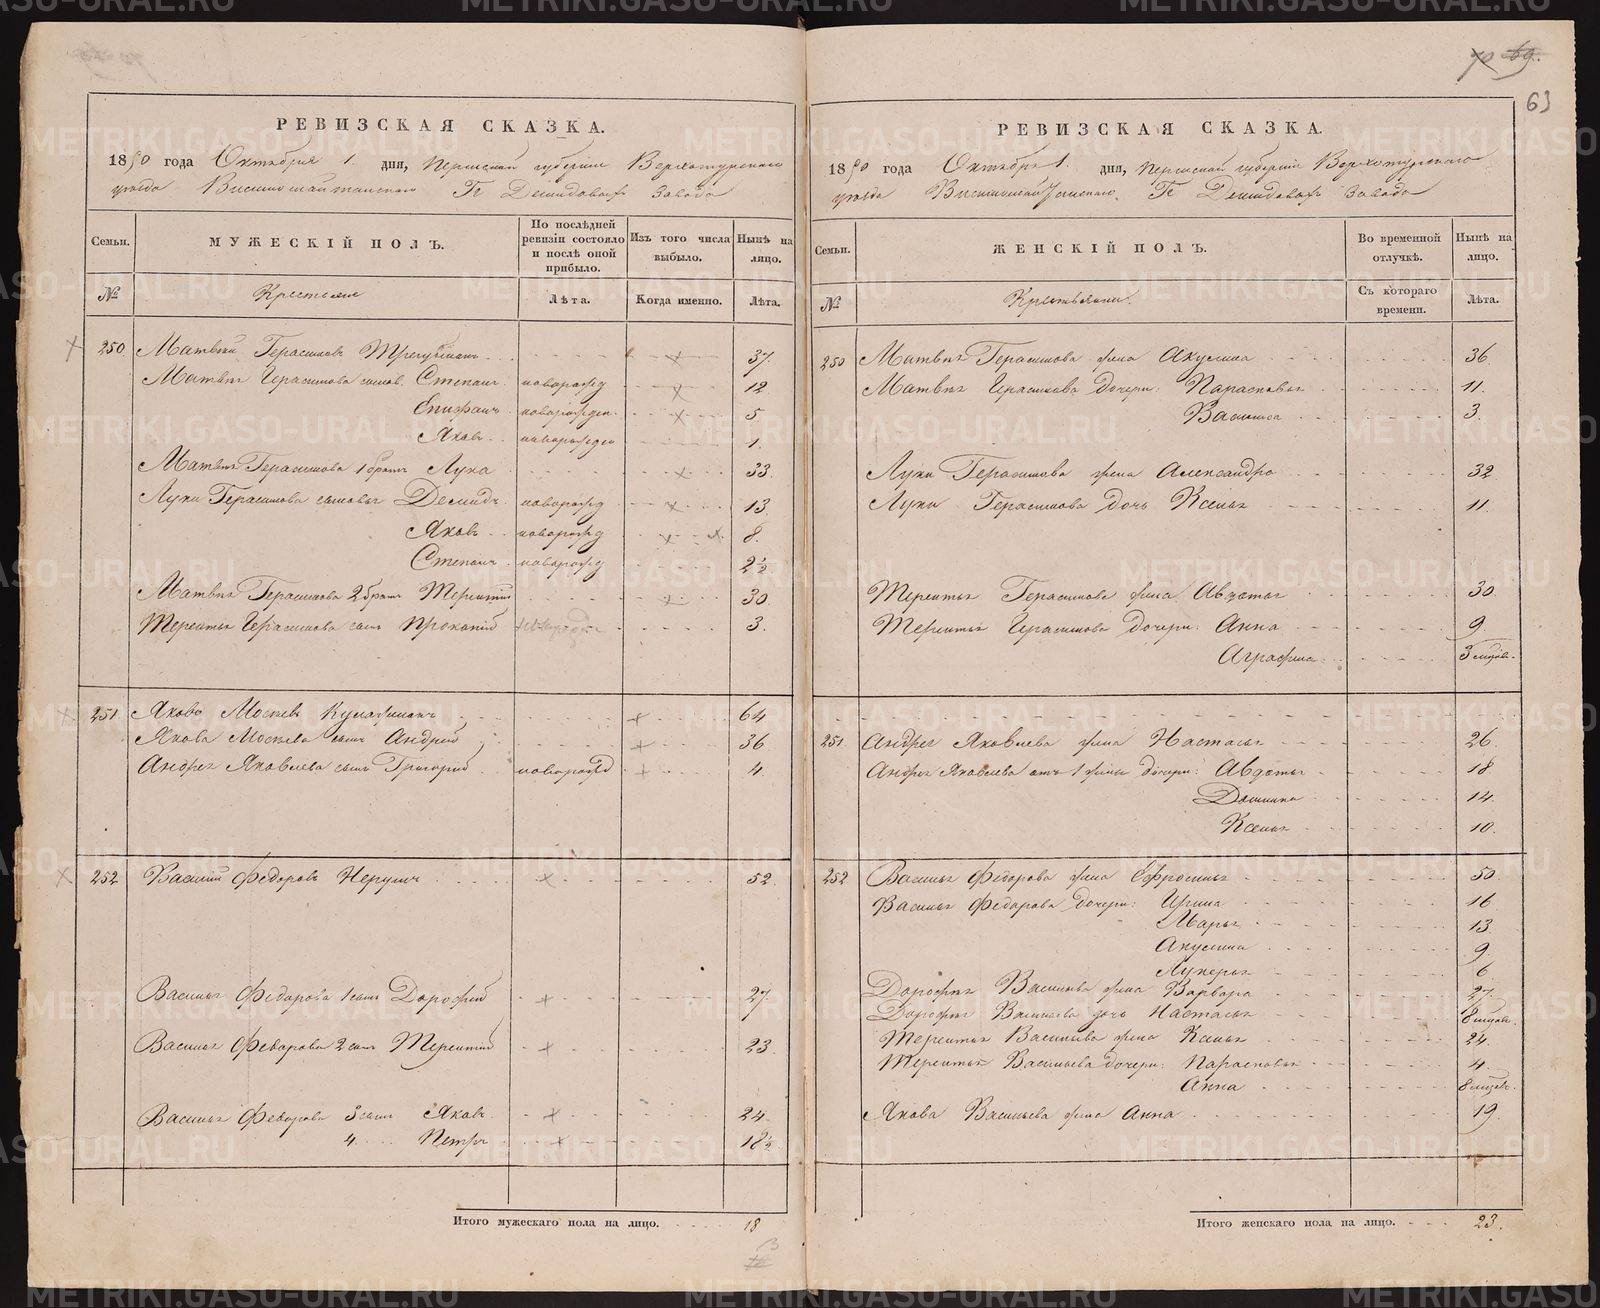 70 69.
63
РЕВИЗСКАЯ СКАЗКА.
1850 года Октября 1. дня, Пермской губернии Верхотурскаго
уѣзда Висимошайтанскаго Гг Демидовыхъ Завода
Семьи. МУЖЕСКІЙ ПОЛЪ. По послѣдней ревизіи состояло и послѣ оной прибыло. Изъ того числа выбыло. Нынѣ на лицо.
№ Крестьяне Лѣта. Когда именно. Лѣта.
250 Матвѣй Герасимовъ 37.
Матвѣя Герасимова сынов. Степанъ новорожд 12
Епифанъ новорожден. 5
Яковъ новорожден 1.
Матвѣя Герасимова 1 братъ Лука 33.
Луки Герасимова сыновья Демидъ новорожд 13.
Яковъ новорожд 8.
Степанъ новорожд 2½
Матвѣя Герасимова 2 братъ Терентій 30.
Терентья Герасимова сынъ Прокопій новорожд 3.
251 Яковъ Мосѣевъ 64
Якова Мосѣева сынъ Андрей 36
Андрея Яковлева сынъ Григорій новорожд 4.
252 Василій Федоровъ 52.
Василья Федорова 1 сынъ Дорофей 27.
Василья Федорова 2 сынъ Терентій 23.
Василья Федорова 3 сынъ Яковъ 24.
4 Петръ 18½
Итого мужескаго пола на лицо. 18
РЕВИЗСКАЯ СКАЗКА.
1850 года Октября 1. дня, Пермской губерніи Верхотурскаго
уѣзда Висимошайтанскаго Гг Демидовыхъ Завода
Семьи. ЖЕНСКІЙ ПОЛЪ. Во временной отлучкѣ. Нынѣ на лицо.
№ Крестьянки. Съ котораго времени. Лѣта.
250 Матвѣя Герасимова жена Акулина 36
Матвѣя Герасимова дочери: Парасковья 11.
Васиииса 3.
Луки Герасимова жена Александра 32
Луки Герасимова дочь Ксенья 11.
Терентья Герасимова жена Авдотья 30.
Терентья Герасимова дочери: Анна 9.
Аграфена 3 мцов.
251 Андрея Яковлева жена Настасья 26.
Андрея Яковлева отъ 1 жены дочери: Авдотья 18
Домника 14.
Ксенья 10.
252 Василья Федорова жена Ефросинья 50.
Василья Федорова дочери: Ирина 16
Марья 13.
Акулина 9.
Лукерья 6
Дорофея Васильева жена Варвара 27.
Дорофея Васильева дочь Настасья 8 мцов.
Терентья Васильева жена Ксенья 24.
Терентья Васильева дочери: Парасковья 4.
Анна 8 мцов.
Якова Васильева жена Анна 19.
Итого женскаго пола на лицо. 23.
METRIKI.GASO-URAL.RU